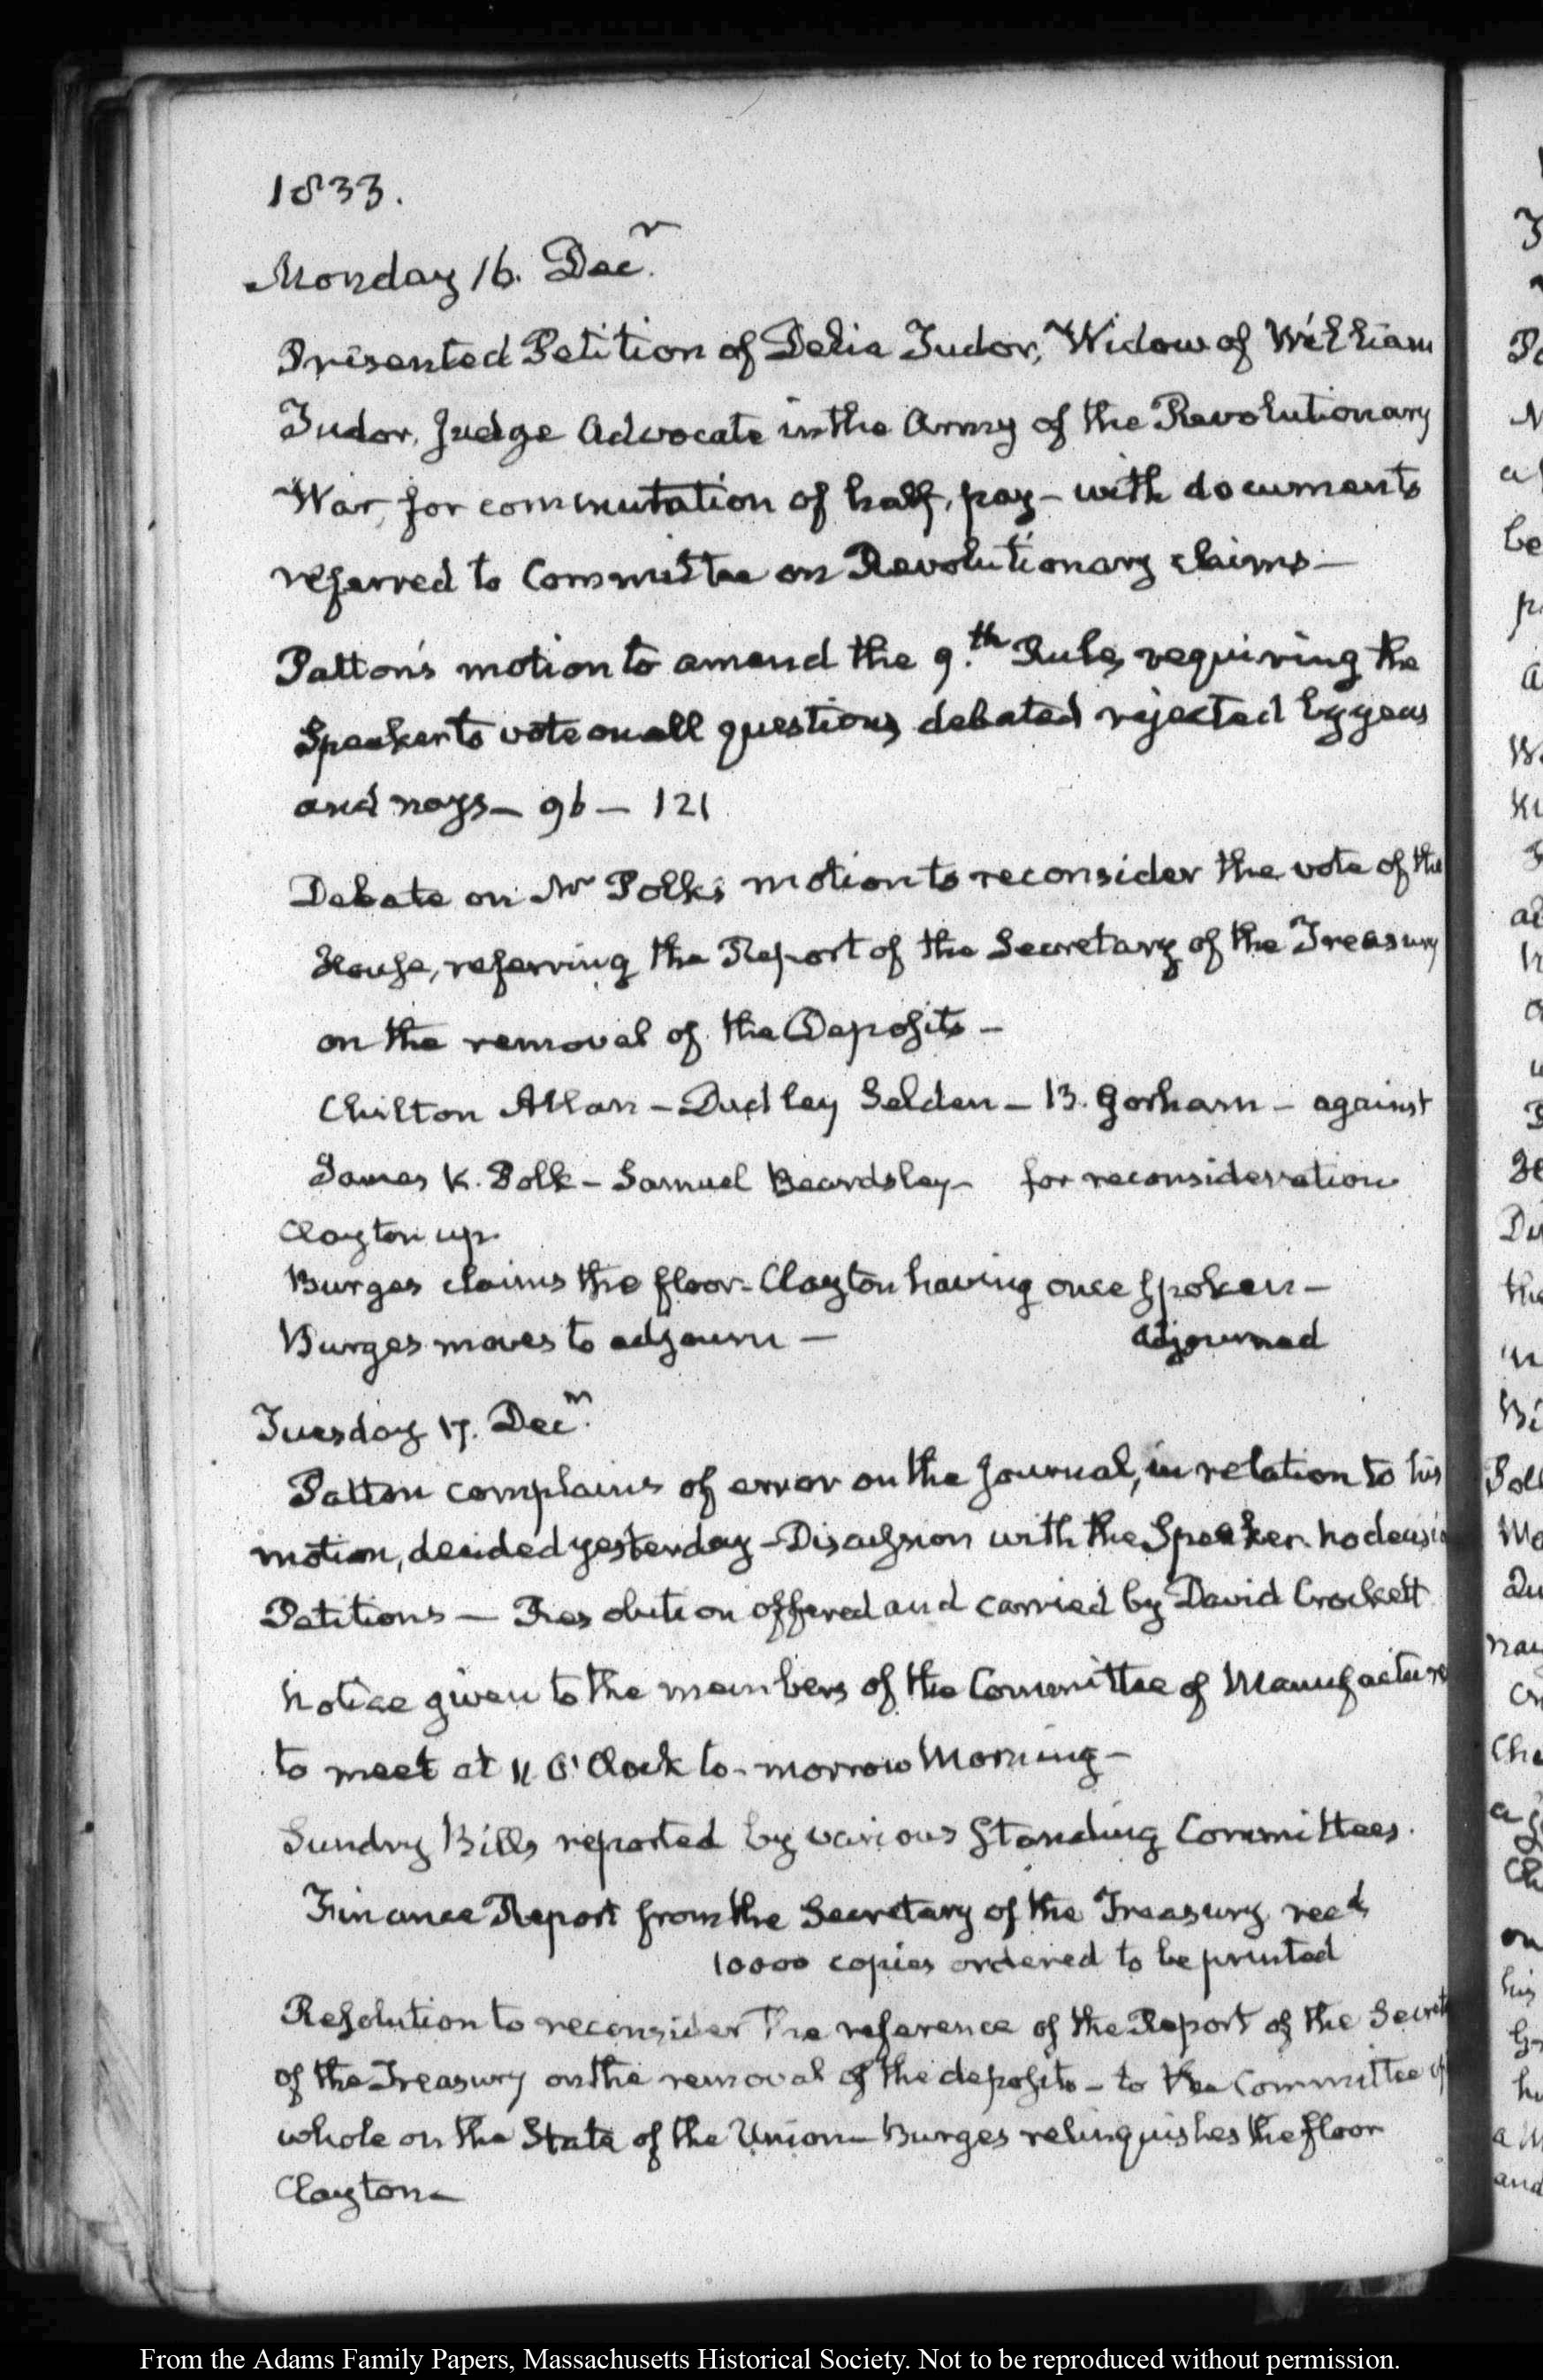 1833.
Monday 16. Decr.
Presented Petition of Delia Tudor, Widow of William
Tudor, Judge Advocate in the Army of the Revolutionary
War, for commutation of half, pay - with documents
referred to Committee on Revolutionary claims -
Patton's motion to amend the 9.th Rule, requiring the
Speaker to vote on all questions, debated rejected by yeas
and nays - 96 - 121
Debate on Mr Polk's motion to reconsider the vote of the
House, referring the Report of the Secretary of the Treasury
on the removal of the Deposits -
Chilton Allan - Dudley Selden - B. Gorham - against
James K. Polk - Samuel Beardsley - for reconsideration
Clayton up.
Burges claims the floor - Clayton having once spoken -
Burges moves to adjourn - Adjourned
Tuesday 17. Decr.
Patton complains of error on the Journal, in relation to his
motion, decided yesterday - Discussion with the Speaker. no decisio
Petitions - Resolution offered and carried by David Crockett
Notice given to the members of the Committee of Manufactures
to meet at 11 O'Clock to-morrow Morning -
Sundry Bills reported by various Standing Committees.
Finance Report from the Secretary of the Treasury recd
10000 copies ordered to be printed
Resolution to reconsider the reference of the Report of the Secret
of the Treasury on the removal of the deposits - to the Committee of
whole on the State of the Union - Burges relinquishes the floor
Clayton -
From the Adams Family Papers, Massachusetts Historical Society. Not to be reproduced without permission.